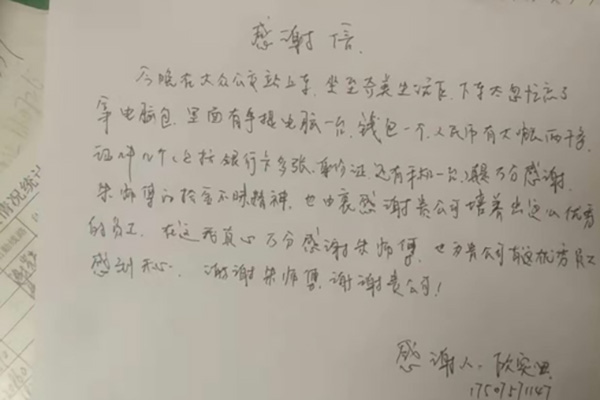 感谢信
今晚在大众公交站上车,坐至奇美生活下,下车太急忘了
拿电脑包,里面有手提电脑一台,钱包一个,人民币有大概两千多,
证件几个,包括银行卡多张,身份证,还有手机一台,万分感谢
朱师傅的拾金不昧精神,也由衷感谢贵公司培养出这么优秀
的员工,在这我真心万分感谢朱师傅,也为贵公司有这优秀员工
感到开心,谢谢朱师傅,谢谢贵公司!
感谢人:欧